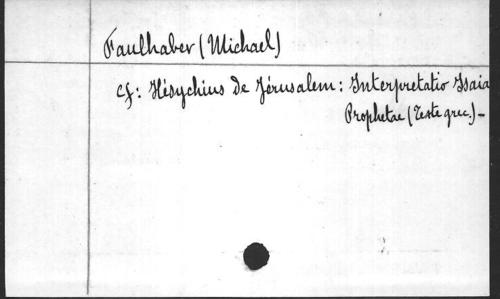 Faulhaber (Michael)
cf: Hésychius de Jérusalem: Interpretatio Isaia
Prophetae (Texte grec.) -